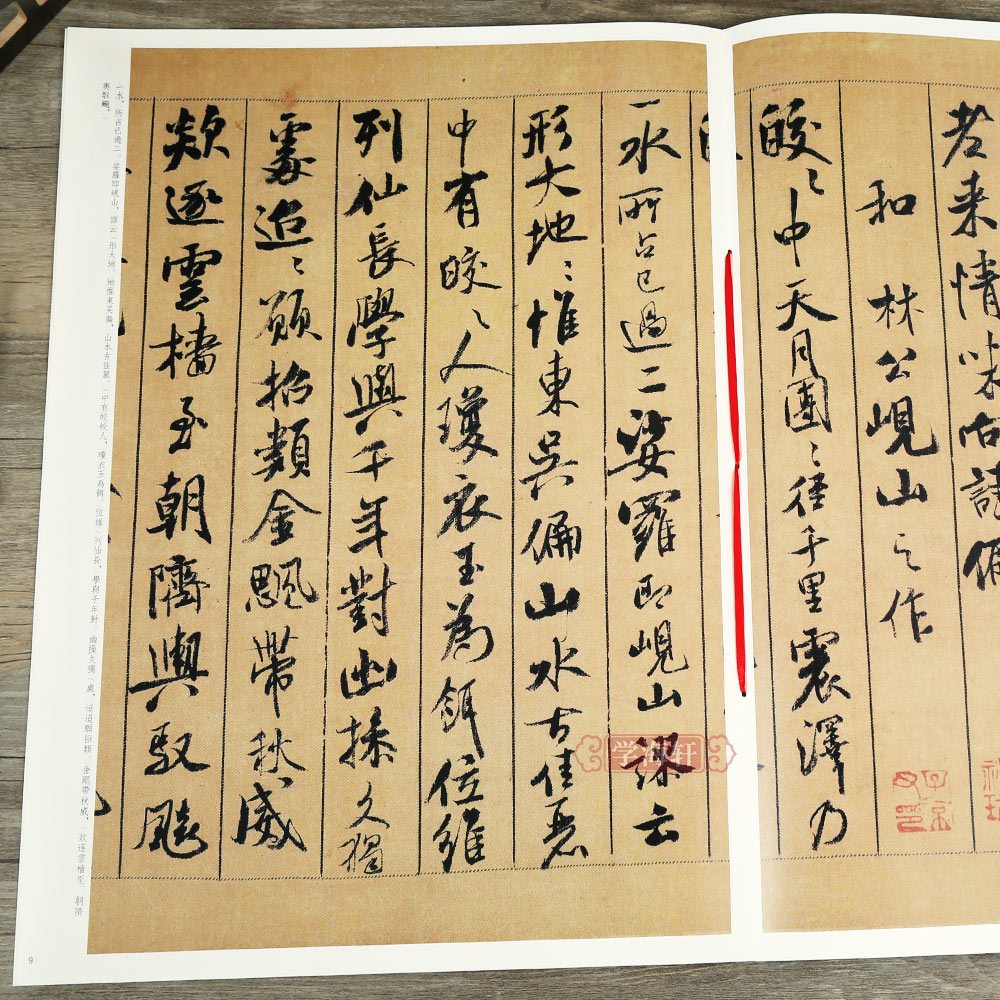 老来情味向詩偏
和林公峴山之作
皎〻中天月團〻徑千里震澤乃
一水所占已過二娑羅即峴山謬云
形大地〻惟東吳偏山水古佳麗
中有皎〻人瓊衣玉為餌位維
列仙長學與千年對幽操久獨
處迢〻願招類金颸帶秋威
欻逐雲檣至朝隮輿馭飆
一水,所占已過二。娑羅即峴山,謬云/形大地。地惟東吳偏,山水古佳麗。/中有皎皎人,瓊衣玉為餌。位維/列仙長,學與千年對。幽操久獨/處,迢迢願招類。金颸帶秋威,/欻逐雲檣至。朝隮
輿馭飆。/
9